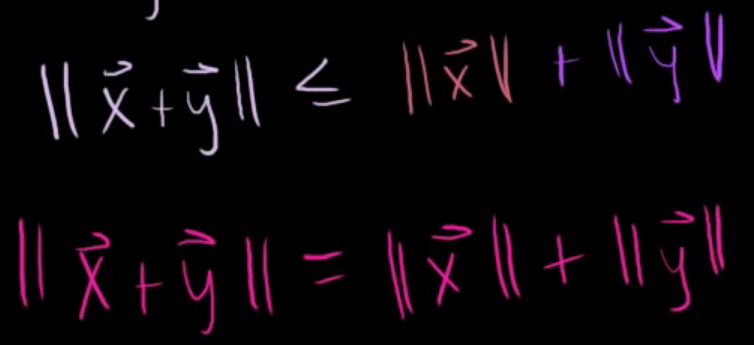 ‖x⃗ + y⃗‖ ≤ ‖x⃗‖ + ‖y⃗‖
‖x⃗ + y⃗‖ = ‖x⃗‖ + ‖y⃗‖